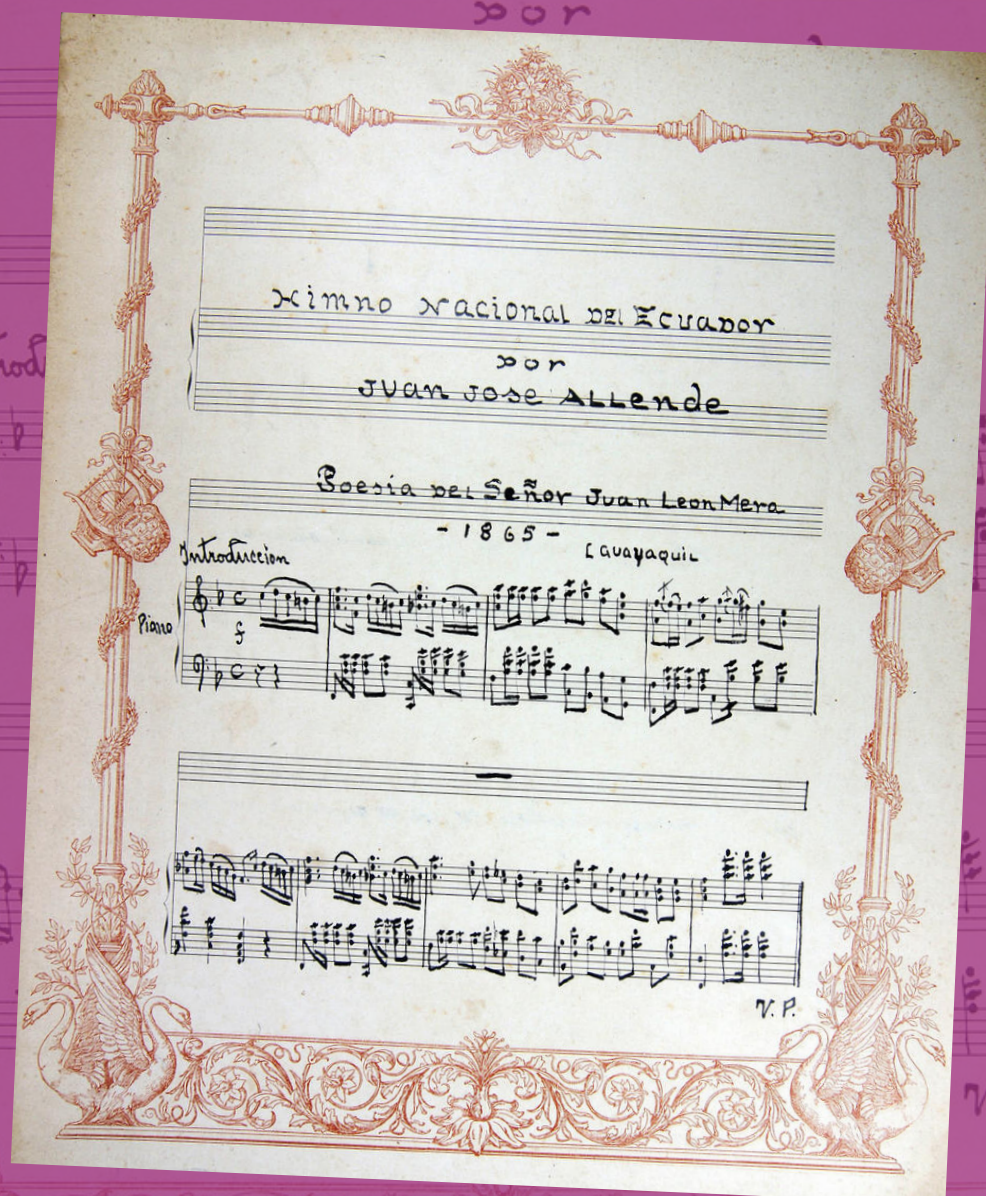 por
Himno Nacional DEL Ecuador
por
Juan Jose Allende
Poesia DEL Señor Juan Leon Mera
- 1865 -
[Guayaquil
Introduccion
Piano
f
V. P.